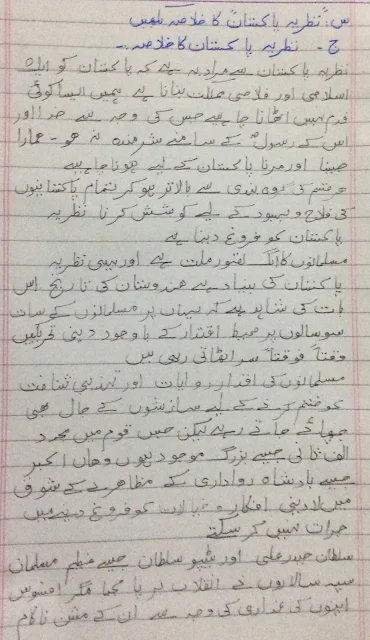 س: "نظریہ پاکستان" کا خلاصہ لکھیں
ج - نظریہ پاکستان کا خلاصہ -
نظریہ پاکستان سے مراد یہ ہے کہ پاکستان کو ایک
اسلامی اور فلاحی مملکت بنانا ہے ہمیں ایسا کوئی
قدم نہیں اٹھانا چاہیے جس کی وجہ سے خدا اور
اس کے رسولؐ کے سامنے شرمندہ نہ ہو - ہمارا
جینا اور مرنا پاکستان کے لیے ہونا چاہیے
ہر قسم کی گروہ بندی سے بالاتر ہو کر تمام پاکستانیوں
کی فلاح و بہبود کے لیے کوشش کرنا نظریہ
پاکستان کو فروغ دینا ہے
مسلمانوں کا الگ تصور ملت ہے اور یہی نظریہ
پاکستان کی بنیاد ہے ہندوستان کی تاریخ اس
بات کی شاہد ہے کہ یہاں پر مسلمانوں کے سات
سو سالوں پر محیط اقتدار کے باوجود دینی تحریکیں
وقتاً فوقتاً سر اٹھاتی رہی ہیں
مسلمانوں کی اقدار روایات اور تہذیبی ثقافت
کو ختم کرنے کے لیے سازشوں کے جال بھی
بچھائے جاتے رہے لیکن جس قوم میں مجدد
الف ثانی جیسے بزرگ موجود ہوں وھاں اکبر
جیسے بادشاہ رواداری کے مظاھرے کے شوق
میں لادینی افکار و خیالات کو فروغ دینے میں
جرات نہیں کر سکتے
سلطان حیدر علی اور ٹیپو سلطان جیسے عظیم مسلمان
سپہ سالاروں نے انقلاب برپا کیا مگر افسوس
اپنوں کی غداری کی وجہ سے ان کے مشن ناکام